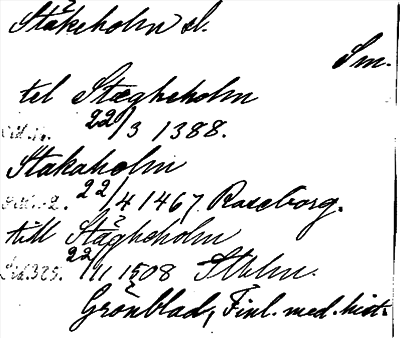 Stäkeholm sl.
Sm.
til Stægheholm
22/3 1388.
Stakaholm
22/4 1467 Raseborg.
till Stägheholm
Sid. 325. 22/1 1508 Sthlm.
Grönblad, Finl. med. hist.